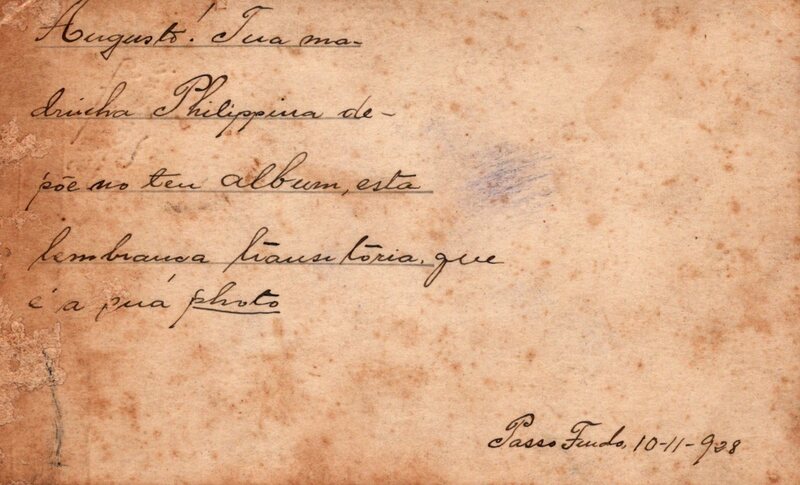 Augusto! Tua ma-
drinha Philippina de-
põe no teu album, esta
lembrança transitória, que
é a suá photo
Passo Fundo, 10-11-928